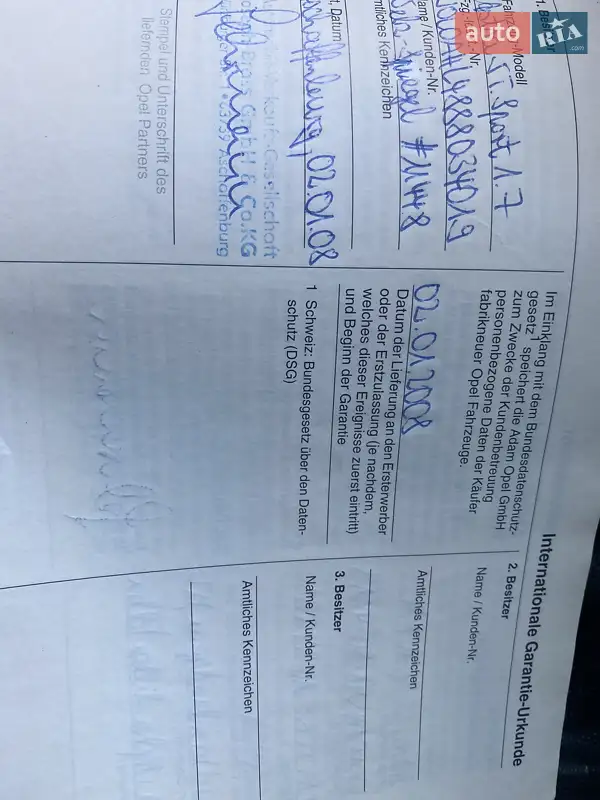 auto
RIA
.com
Internationale Garantie-Urkunde
1. Besitzer
-Modell
ST. Sport 1.7
888034019
Name / Kunden-Nr.
Spiegel #11448
mtliches Kennzeichen
t, Datum
02.01.08
Gesellschaft
& Co. KG
Aschaffenburg
Stempel und Unterschrift des
liefernden Opel Partners
Im Einklang mit dem Bundesdatenschutz-
gesetz¹ speichert die Adam Opel GmbH
zum Zwecke der Kundenbetreuung
personenbezogene Daten der Käufer
fabrikneuer Opel Fahrzeuge.
02.01.2008
Datum der Lieferung an den Ersterwerber
oder der Erstzulassung (je nachdem,
welches dieser Ereignisse zuerst eintritt)
und Beginn der Garantie
1 Schweiz: Bundesgesetz über den Daten-
schutz (DSG)
2. Besitzer
Name / Kunden-Nr.
Amtliches Kennzeichen
3. Besitzer
Name / Kunden-Nr.
Amtliches Kennzeichen